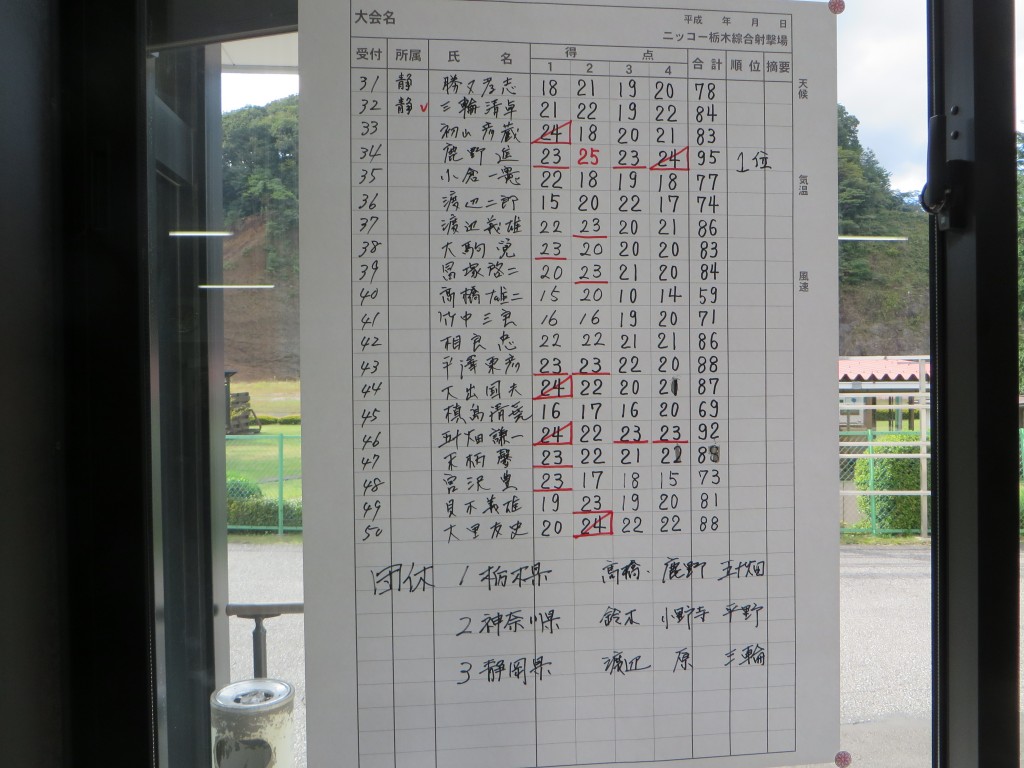 大会名 平成 年 月 日
ニッコー栃木綜合射撃場
受付 所属 氏 名 得 点 合計 順位 摘要
1 2 3 4
天候
気温
風速
31 静 勝又孝志 18 21 19 20 78
32 静 三輪清卓 21 22 19 22 84
33 初山彦蔵 24 18 20 21 83
34 鹿野進 23 25 23 24 95 1位
35 小倉一憲 22 18 19 18 77
36 渡辺二郎 15 20 22 17 74
37 渡辺義雄 22 23 20 21 86
38 大駒寛 23 20 20 20 83
39 啓二 20 23 21 20 84
40 高橋雄二 15 20 10 14 59
41 竹中三 16 16 19 20 71
42 相良忠 22 22 21 21 86
43 平澤東彦 23 23 22 20 88
44 大出国夫 24 22 20 21 87
45 槙島清 16 17 16 20 69
46 五十畑謙一 24 22 23 23 92
47 23 22 21
48 宮沢豊 23 17 18 15 73
49 義雄 19 23 19 20 81
50 大里友史 20 24 22 22 88
団体 1 栃木県 高橋・鹿野 五十畑
2 神奈川県 鈴木 小野寺 平野
3 静岡県 渡辺 原 三輪